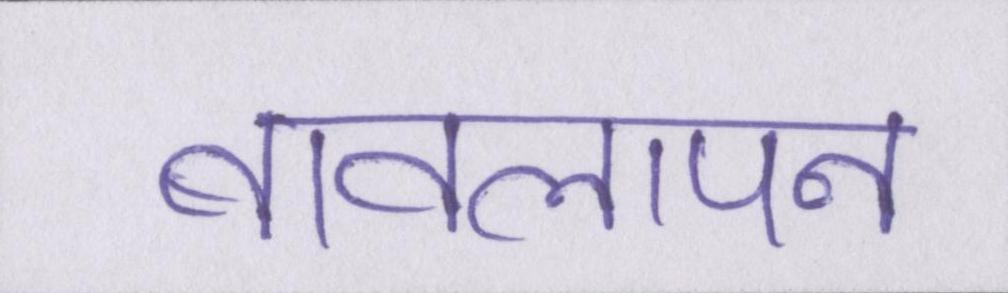 बावलापन